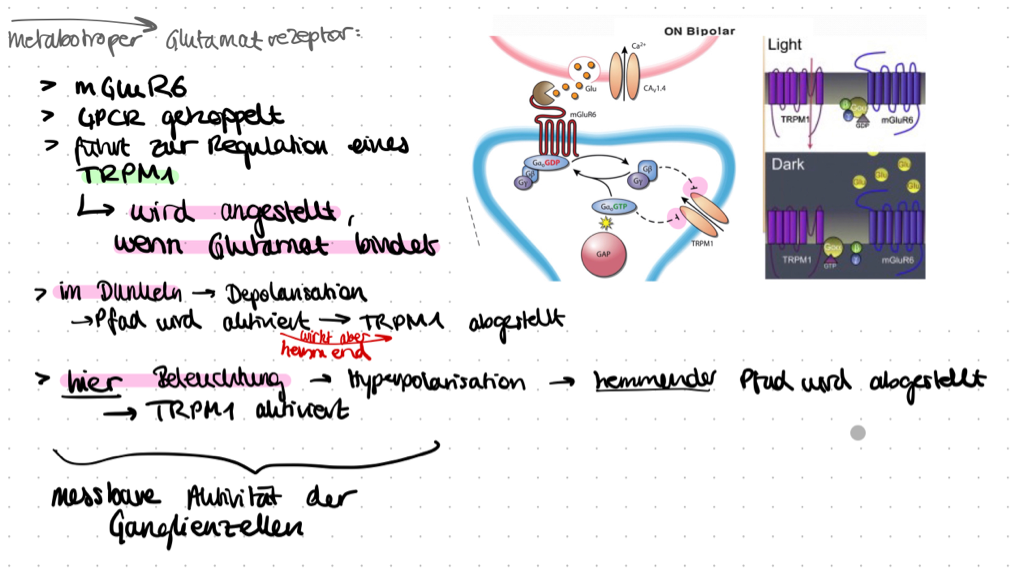 metabotroper Glutamatrezeptor:
> mGluR6
> GPCR gekoppelt
> führt zur Regulation eines
TRPM1
↳ wird angestellt,
wenn Glutamat bindet
> im Dunkeln → Depolarisation
→ Pfad wird aktiviert → TRPM1 abgestellt
wirkt aber
hemmend
> hier Beleuchtung → Hyperpolarisation → hemmender Pfad wird abgestellt
→ TRPM1 aktiviert
messbare Aktivität der
Ganglienzellen
ON Bipolar
Ca²⁺
Glu
CAᵥ1.4
mGluR6
GαₒGDP
Gβ
Gγ
Gβ
Gγ
GαₒGTP
GAP
TRPM1
Light
TRPM1
Gαo
β
γ
GDP
mGluR6
Dark
Glu
Glu
Glu
TRPM1
Gαo
GTP
β
γ
mGluR6